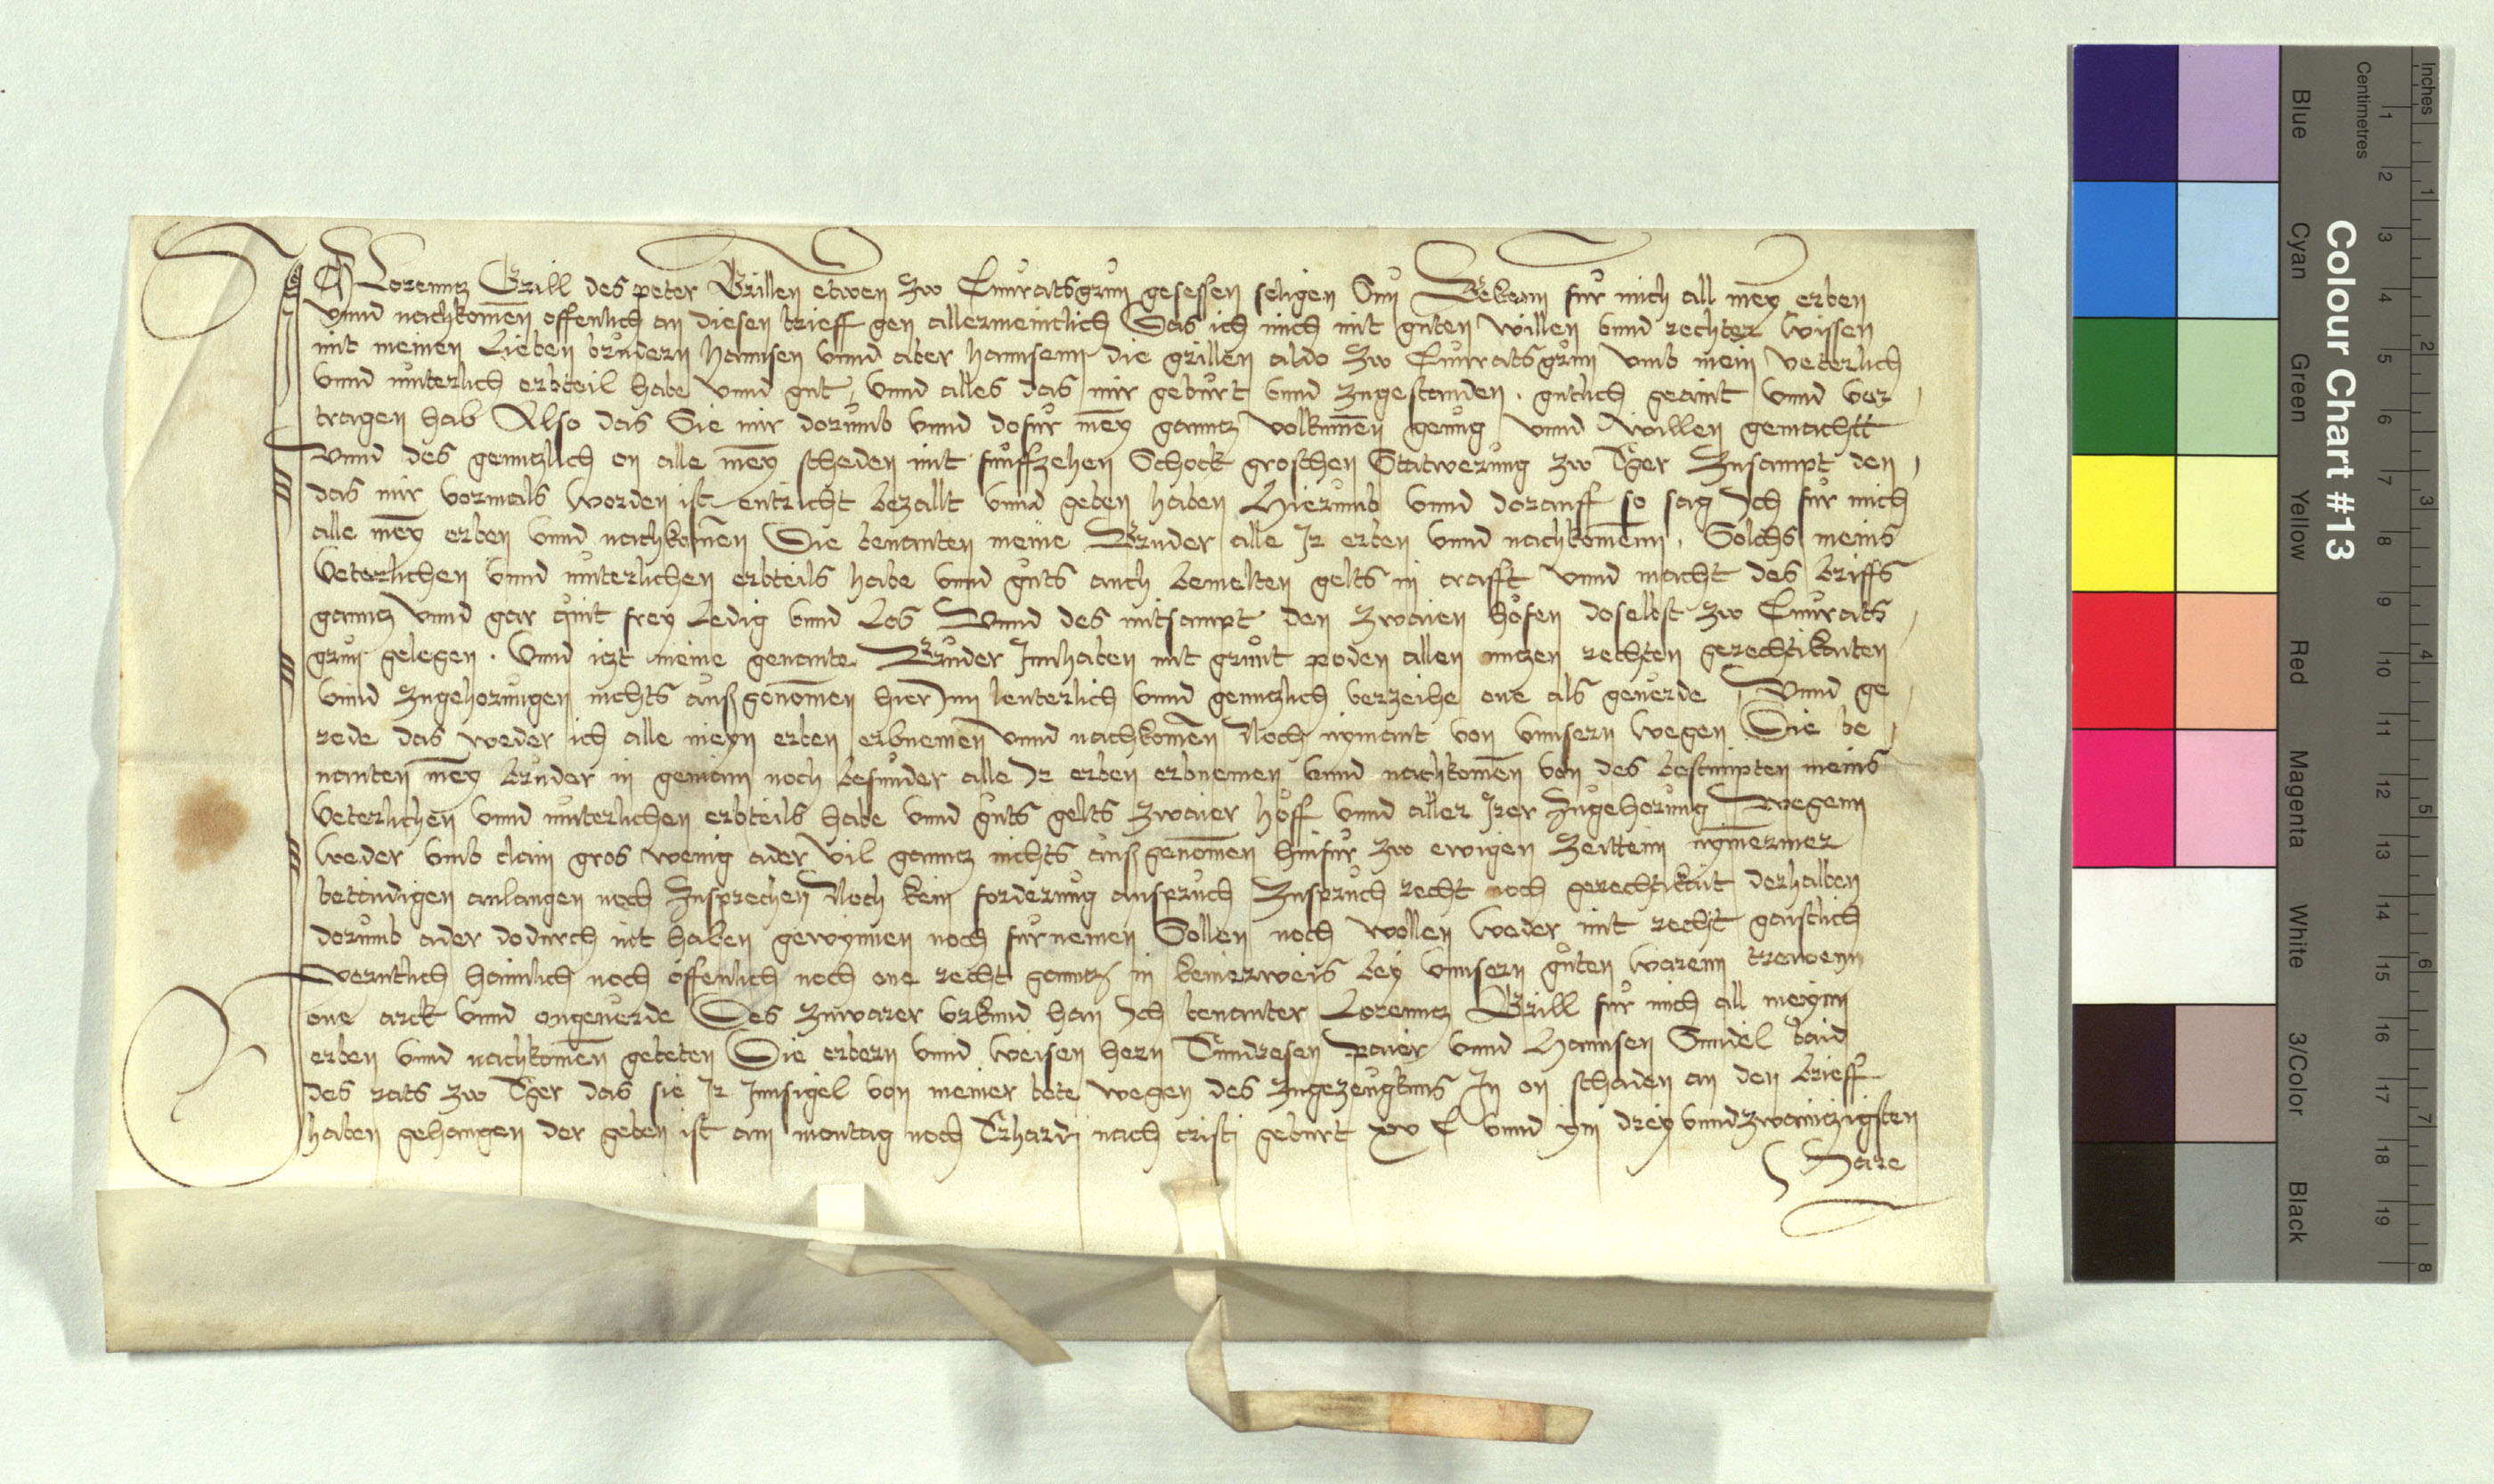 Ich Lorenntz Grill des peter Grillen etwen zw Cunratsgrun gesessen seligen Sun Bekenn fur mich all mey erben
vnnd nachkomen offenlich an diesen brieff gen allermeinclich Das ich mich mit guten willen vnnd rechter wissen
mit meinen Lieben brudern hannsen vnnd aber hannsenn die grillen aldo zw Cunratsgrun vmb mein veterlich
vnnd muterlich erbteil habe vnnd gut, vnnd alles das mir geburt vnnd zugestanden. gutlich geaint vnnd ver
tragen hab Also das Sie mir dorumb vnnd dofur mey ganntz volkumen genug vnnd willen gemachtt
vnnd des genntzlich on alle mey scheden mit funffzehen Schock groschen Statwerung zw Eger Zusampt den
das mir vormals worden ist entricht bezallt vnnd geben haben Hierumb vnnd dorauff so sag Ich fur mich
alle mey erben vnnd nachkomen Die benanten meine Bruder alle Ir erben vnnd nachkomenn. Solchs meins
veterlichen vnnd muterlichen erbteils habe vnnd guts auch bemelten gelts in crafft vnnd macht des briffs
ganntz vnnd gar quit frey Ledig vnnd Los Vnnd des mitsampt den zwaien hofen doselbst zw Cunrats
grun gelegen. Vnnd itzt meine genante Bruder Innhaben mit grunt poden allen nutzen rechten gerechtikaiten
vnnd zugehorungen nichts außgenomen hier Inn lenterlich vnnd genntzlich verzeihe one als geuerde Vnnd ge
rede das weder ich alle meyn erben erbnemen vnnd nachkomen Noch nymant von vnnsern wegen Die be
nanten mey bruder in gemain noch besunder alle Ir erben erbnemen vnnd nachkomen von des bestimpten meins
veterlichen vnnd muterlichen erbteils habe vnnd guts gelts zwaier hoff vnnd aller Irer Zugehorung wegenn
weder vmb clain gros wenig ader vil ganntz nichts außgenomen hinfur zw ewigen Zeittenn nymermer
betaidigen anlangen noch Zusprechen Noch kein forderung anspruch Zuspruch recht noch gerechtikait derhalben
dorumb ader dodurch nit haben gewynnen noch furnemen Sollen noch wollen weder mit recht gaistlich
werntlich haimlich noch offenlich noch one recht ganntz in keinerweis bey vnnsern guten warenn trewenn
one arck vnnd ongeuerde Des zuwarer vrkund han Ich benanter Lorenntz Grill fur mich all meynn
erben vnnd nachkomen gebeten Die erbern vnnd weisen hern Enndresen paier vnnd Hannsen Cundel baid
des rats zw Eger das sie Ir Innsigel von meiner bete wegen des zugezeugknus In on schaden an den brieff
haben gehangen der geben ist am montag noch Erhardj nach cristj geburt xv C vnnd ym drey vnndzwaintzigsten
Jare
Colour Chart #13
Blue
Cyan
Green
Yellow
Red
Magenta
White
3/Color
Black
Centimetres
1
2
3
4
5
6
7
8
9
10
11
12
13
14
15
16
17
18
19
Inches
1
2
3
4
5
6
7
8